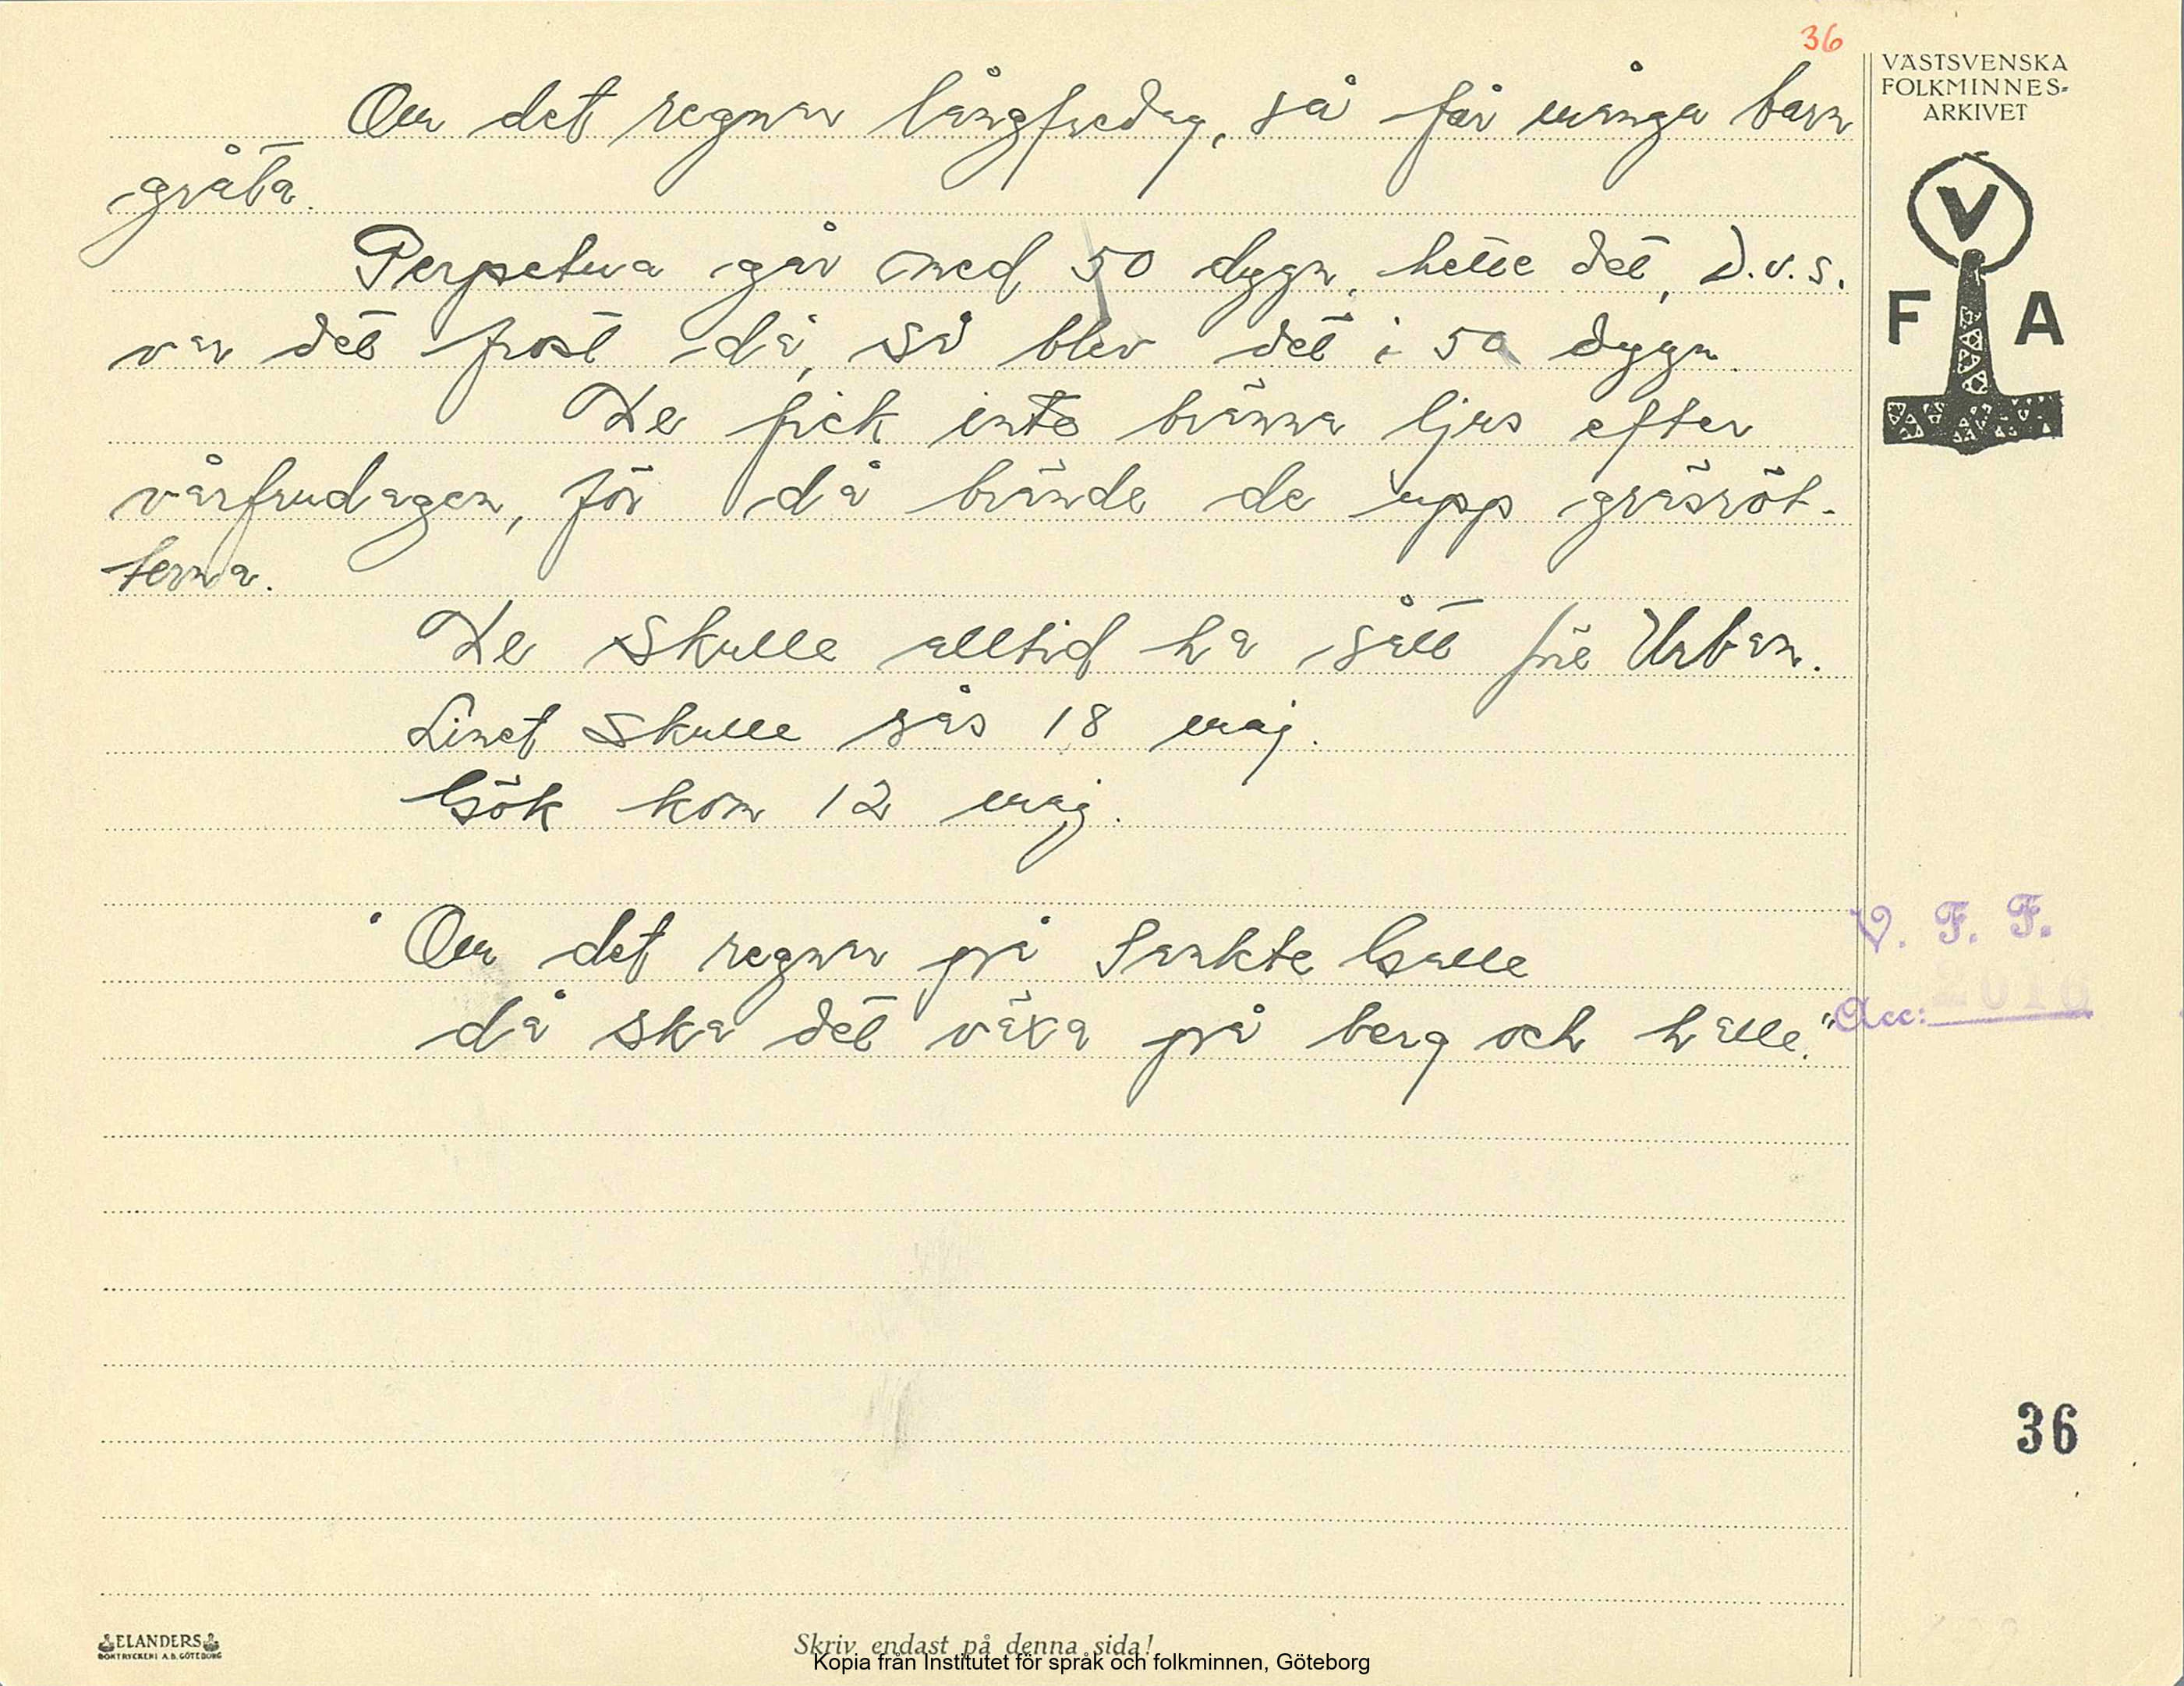 36
VÄSTSVENSKA
FOLKMINNES-
ARKIVET
V
F A
Om det regnar långfredag, så får många barn
gråta.
Perpetua går med 50 dygn, hette det, D.v.s.
var det frost då, så blev det i 50 dygn.
De fick inte bränna ljus efter
vårfrudagen, för då brände de upp gräsröt-
terna.
De skulle alltid ha sått före Urban.
Linet skulle sås 18 maj.
Gök kom 12 maj.
"Om det regnar på Sankte Galle
då ska det växa på berg och halle."
V. F. F.
Acc: 2016
36
ELANDERS
BOKTRYCKERI A.B. GÖTEBORG
Skriv endast på denna sida!
Kopia från Institutet för språk och folkminnen, Göteborg